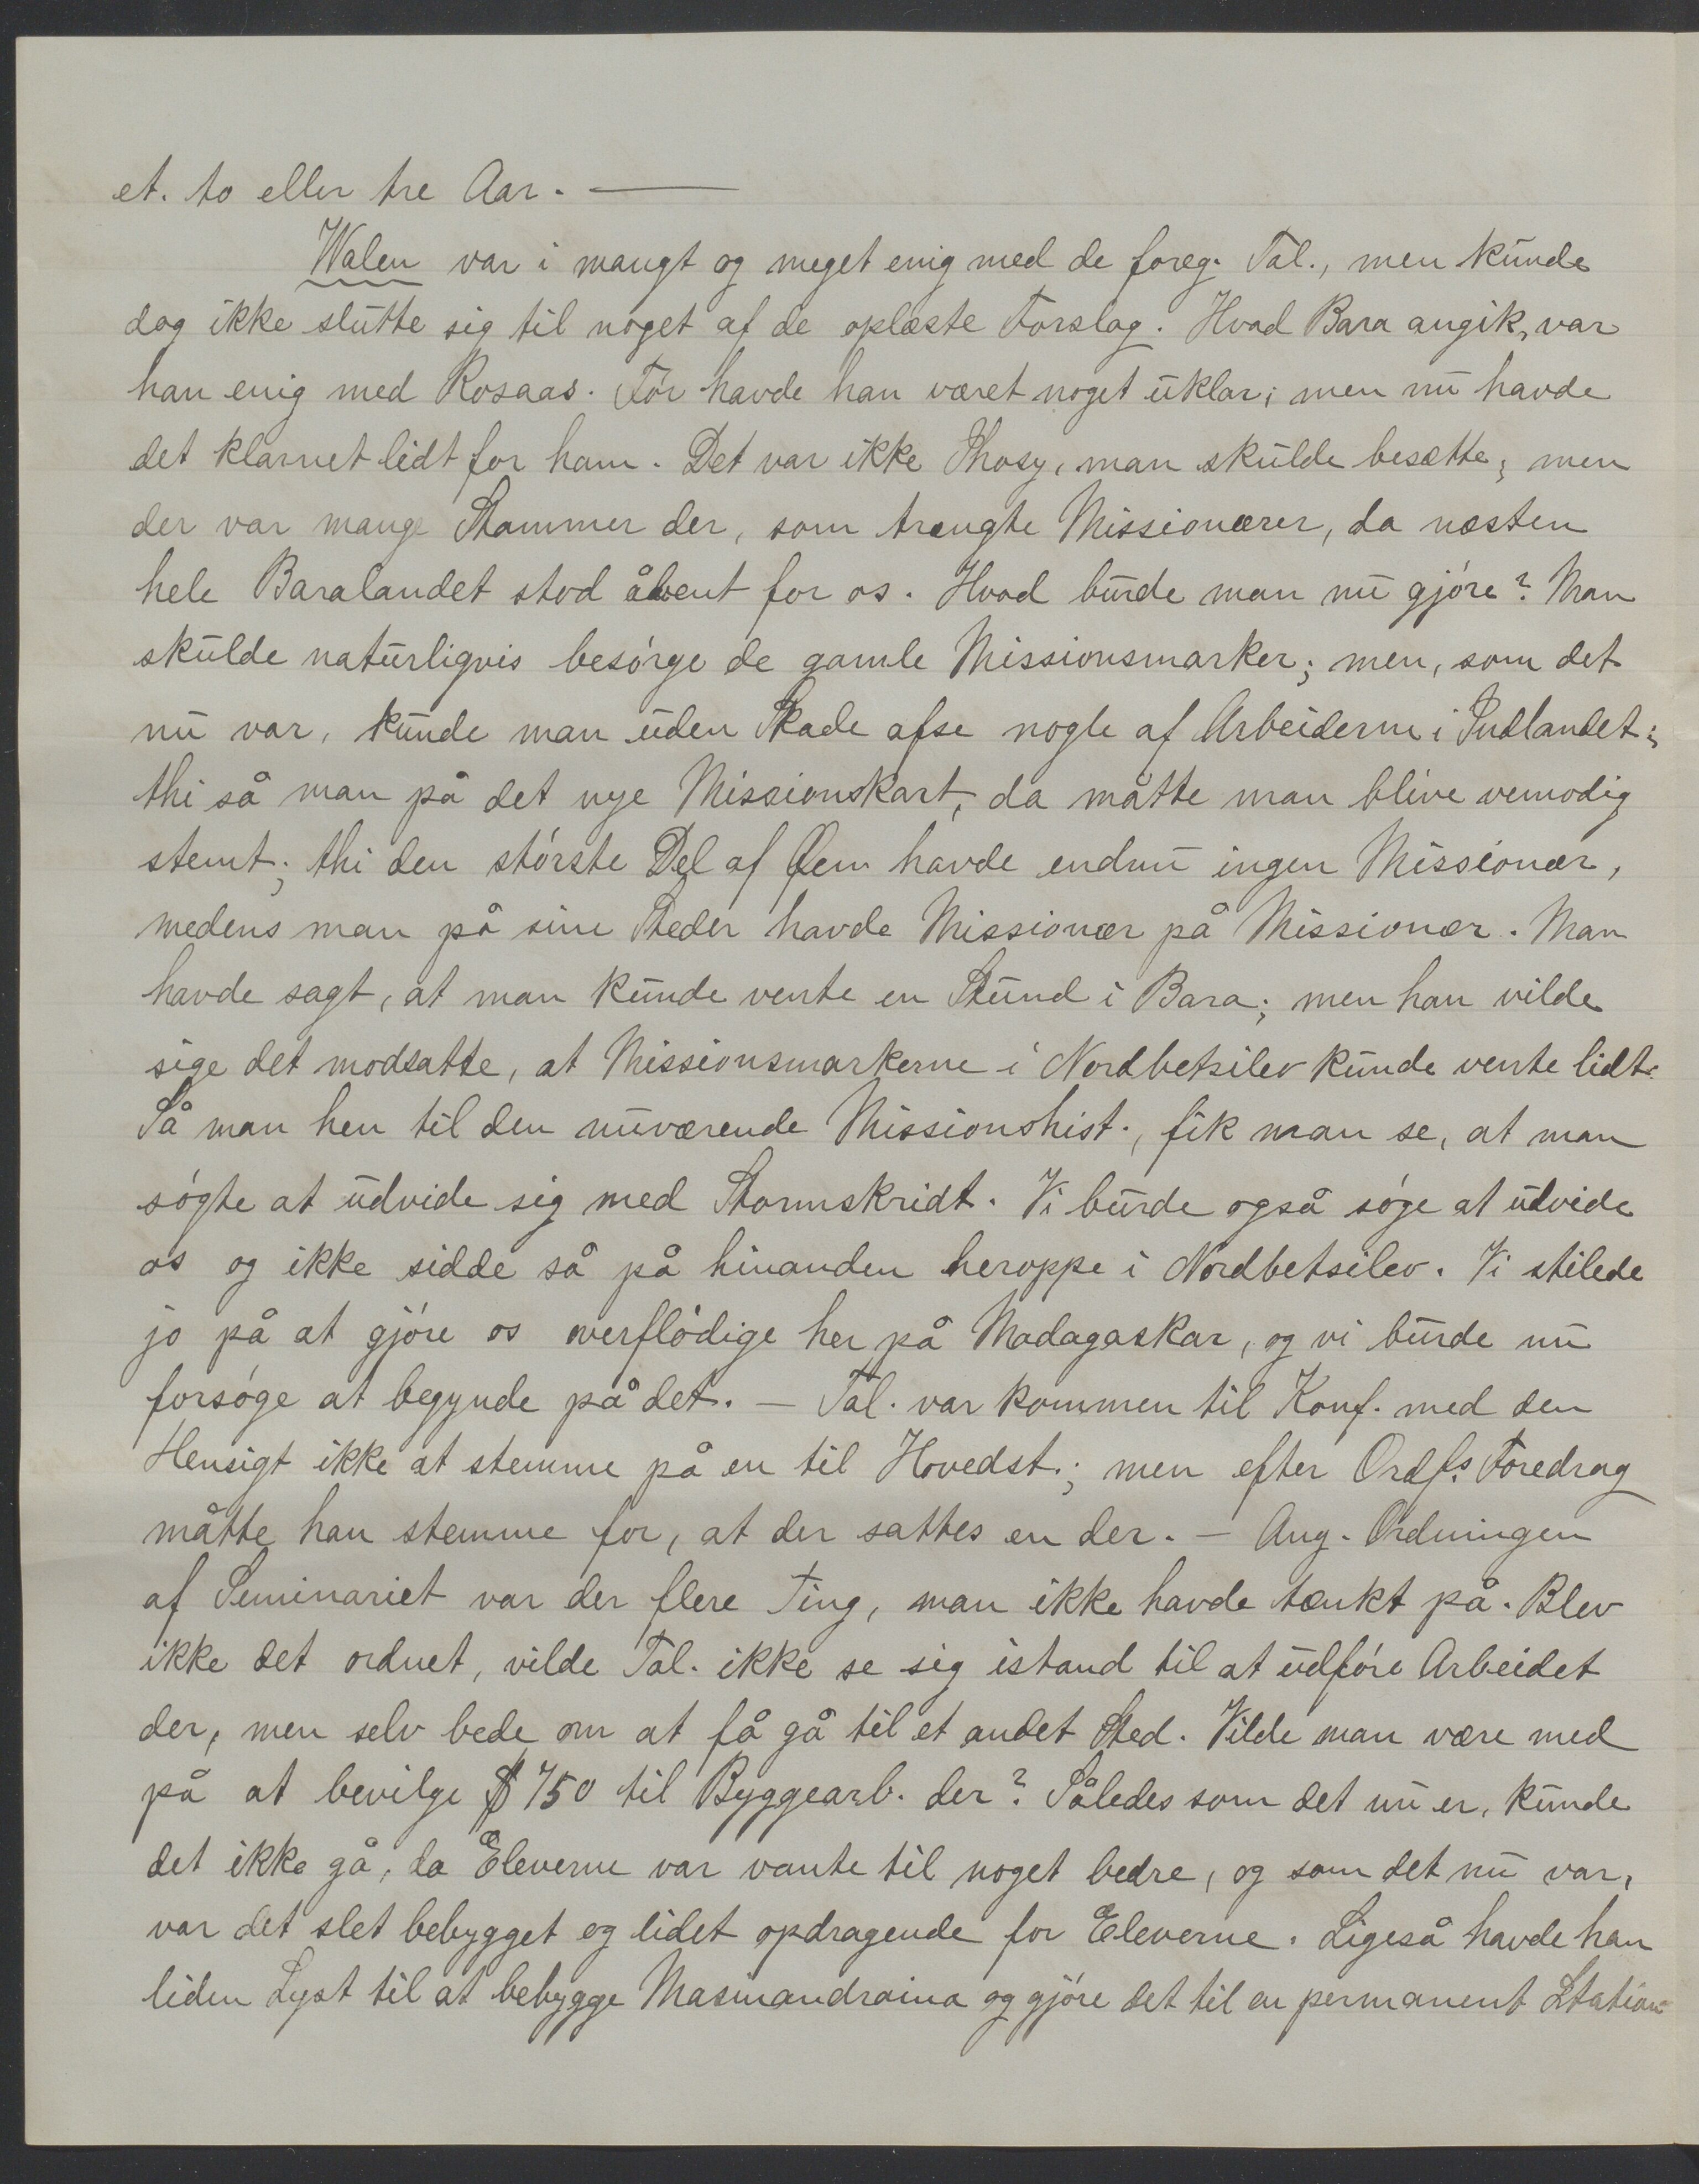 et. to eller tre Aar. —
Walen var i mangt og meget enig med de foreg. Tal., men kunde
dog ikke slutte sig til noget af de oplæste Forslag. Hvad Bara angik, var
han enig med Rosaas. Før havde han været noget uklar; men nu havde
det klarnet lidt for ham. Det var ikke Ihosy, man skulde besætte; men
der var mange Stammer der, som trængte Missionærer, da næsten
hele Baralandet stod åbent for os. Hvad burde man nu gjøre? Man
skulde naturligvis besørge de gamle Missionsmarker; men, som det
nu var, kunde man uden Skade afse nogle af Arbeiderne i Indlandet;
thi så man på det nye Missionskart, da måtte man blive vemodig
stemt; thi den største Del af Øen havde endnu ingen Missionær,
medens man på sine Steder havde Missionær på Missionær. Man
havde sagt, at man kunde vente en Stund i Bara; men han vilde
sige det modsatte, at Missionsmarkerne i Nordbetsileo kunde vente lidt.
Så man hen til den nuværende Missionshist., fik man se, at man
søgte at udvide sig med Stormskridt. Vi burde også søge at udvide
os og ikke sidde så på hinanden heroppe i Nordbetsileo. Vi stilede
jo på at gjøre os overflødige her på Madagaskar, og vi burde nu
forsøge at begynde på det. — Tal. var kommen til Konf. med den
Hensigt ikke at stemme på en til Hovedst.; men efter Ordf.s Foredrag
måtte han stemme for, at der sattes en der. — Ang. Ordningen
af Seminariet var der flere Ting, man ikke havde tænkt på. Blev
ikke det ordnet, vilde Tal. ikke se sig istand til at udføre Arbeidet
der, men selv bede om at få gå til et andet Sted. Vilde man være med
på at bevilge $ 750 til Byggearb. der? Således som det nu er, kunde
det ikke gå, da Eleverne var vante til noget bedre, og som det nu var,
var det slet bebygget og lidet opdragende for Eleverne. Ligeså havde han
liden Lyst til at bebygge Masinandraina og gjøre det til en permanent Station